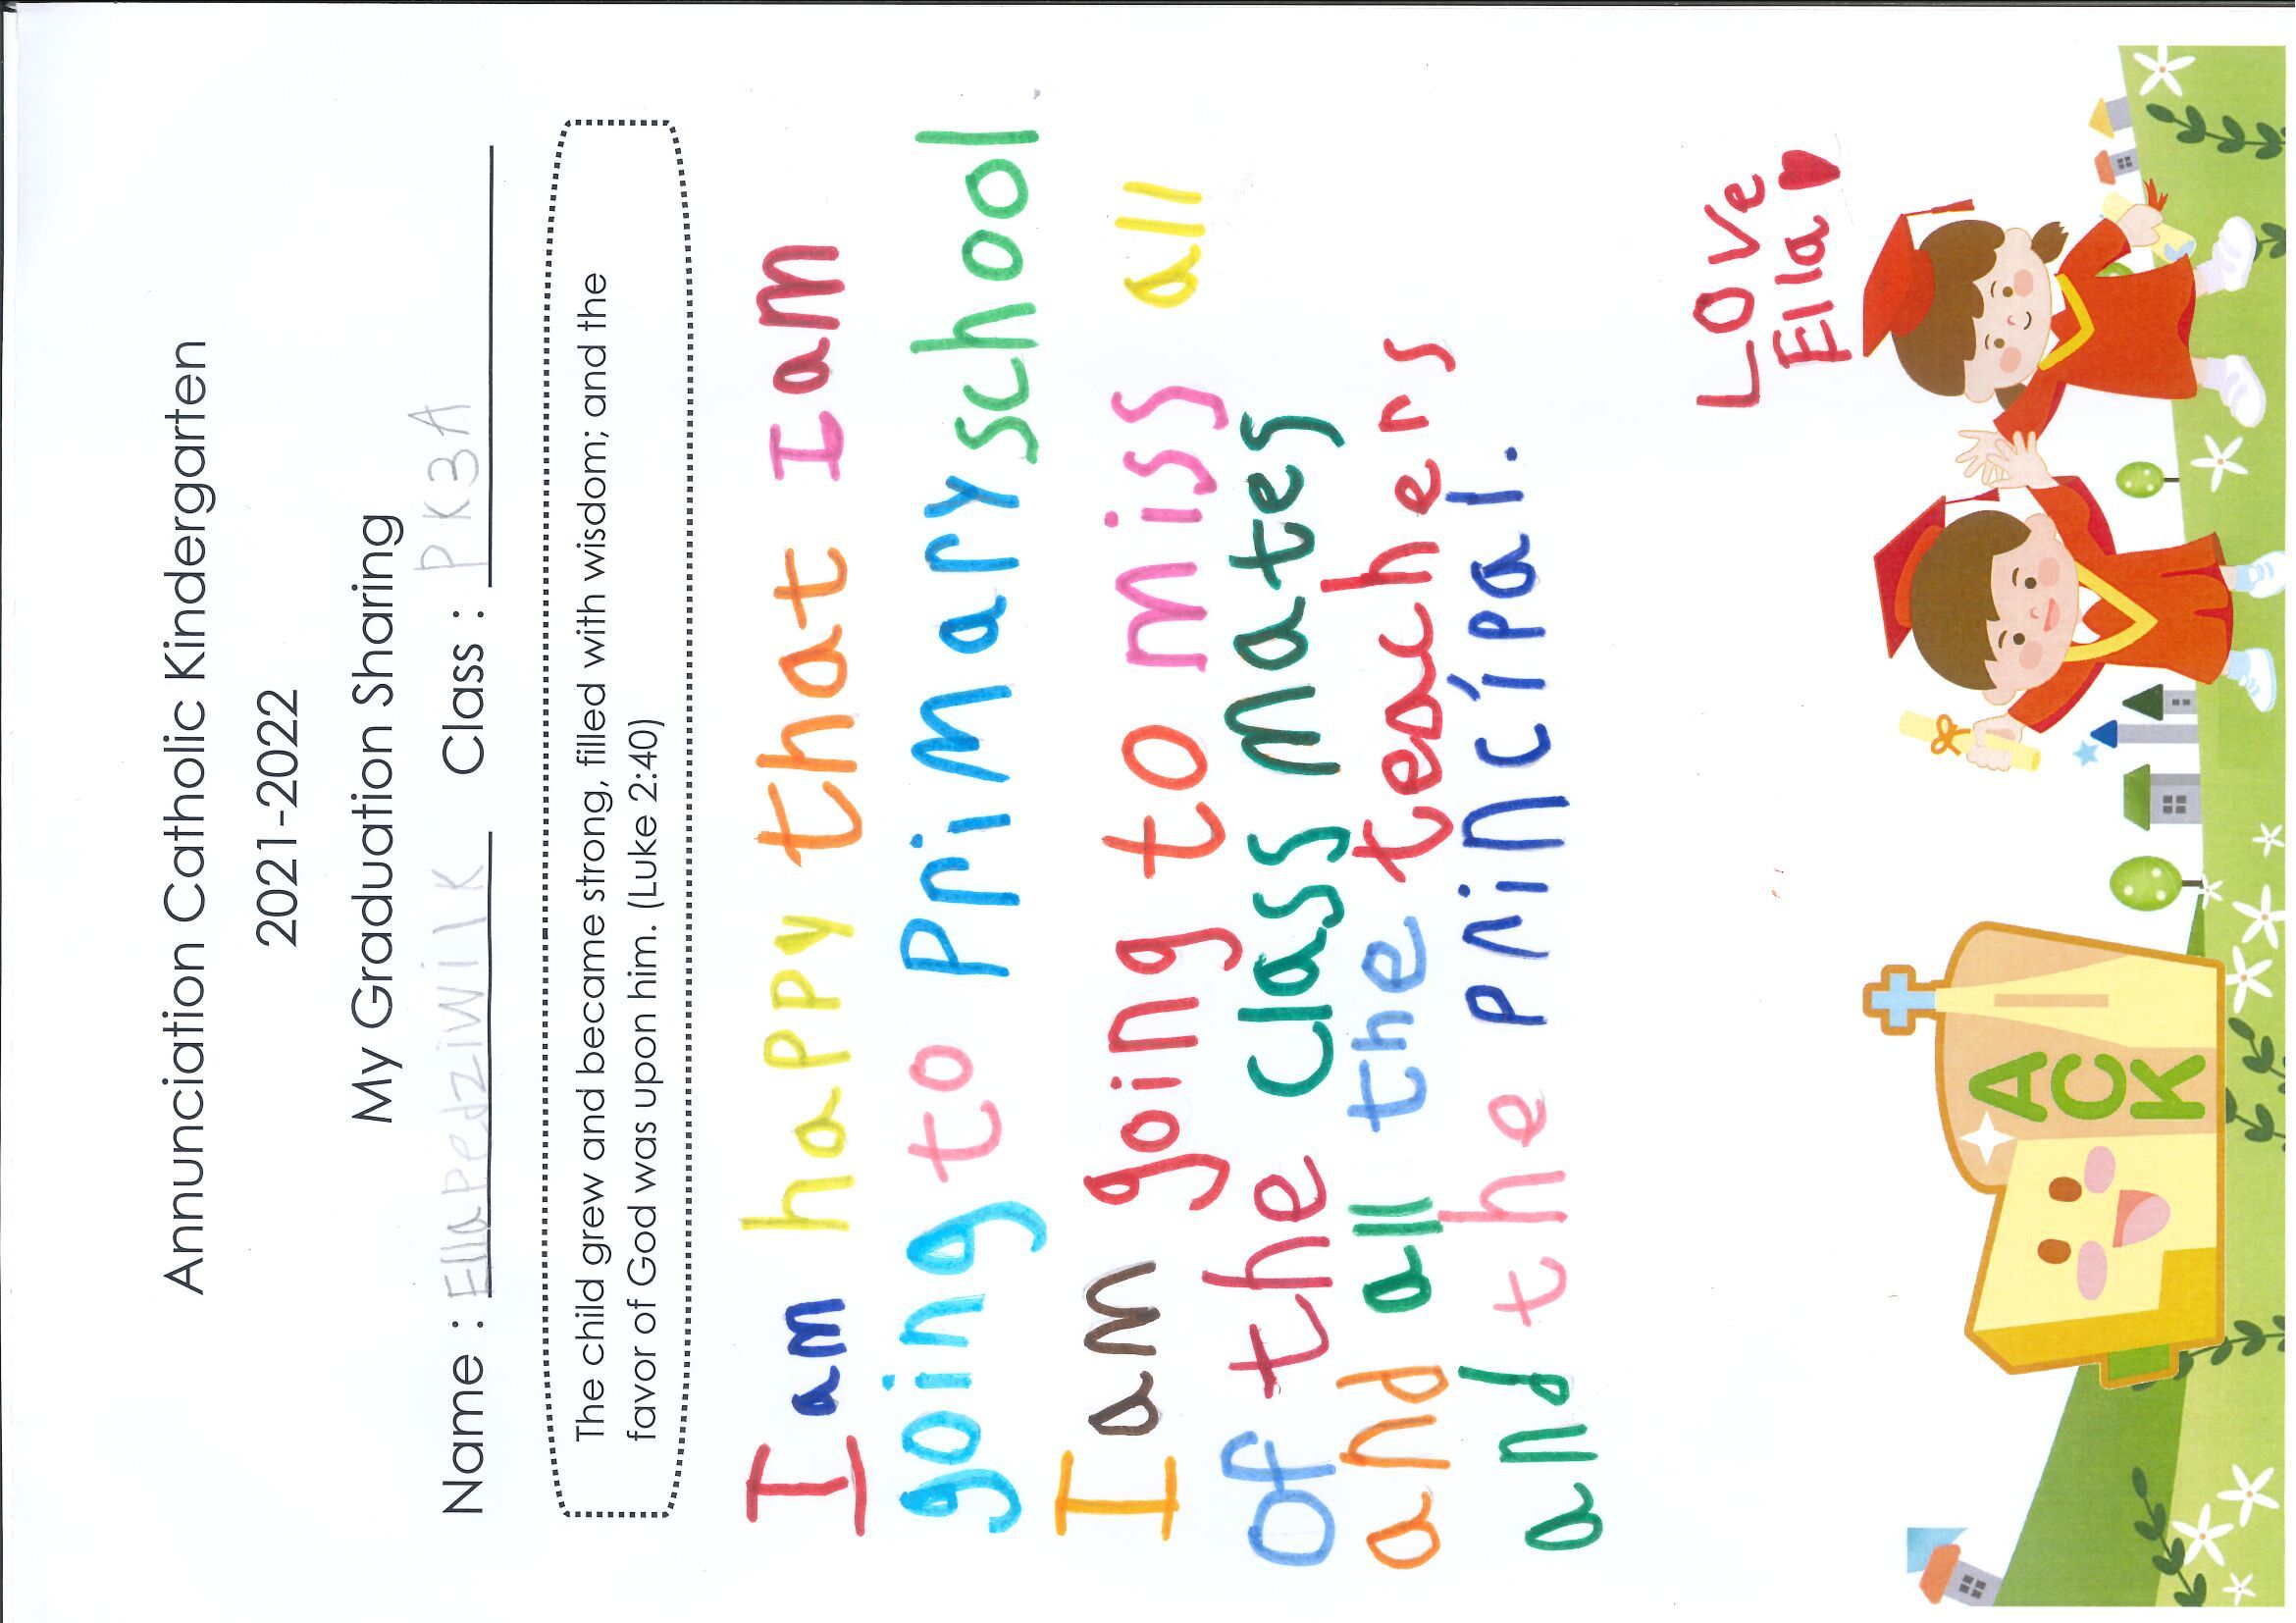 Annunciation Catholic Kindergarten
2021-2022
My Graduation Sharing
Name : Ella Pedziwilk Class : PK3A
The child grew and became strong, filled with wisdom; and the
favor of God was upon him. (Luke 2:40)
I am happy that I am
going to primary school
I am going to miss all
of the class mates
and all the teachers
and the principal.
Love
Ella
ACK